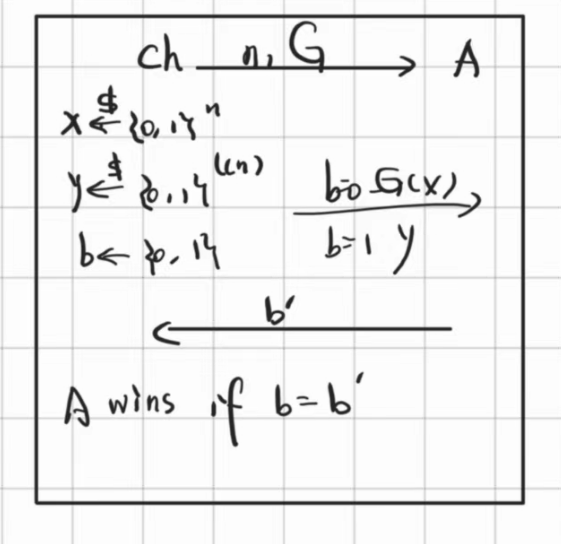 Ch n, G → A
x ←$ {0,1}^n
y ←$ {0,1}^l(n) b=0 G(x)
b ← {0,1} b=1 y
b'
A wins if b = b'